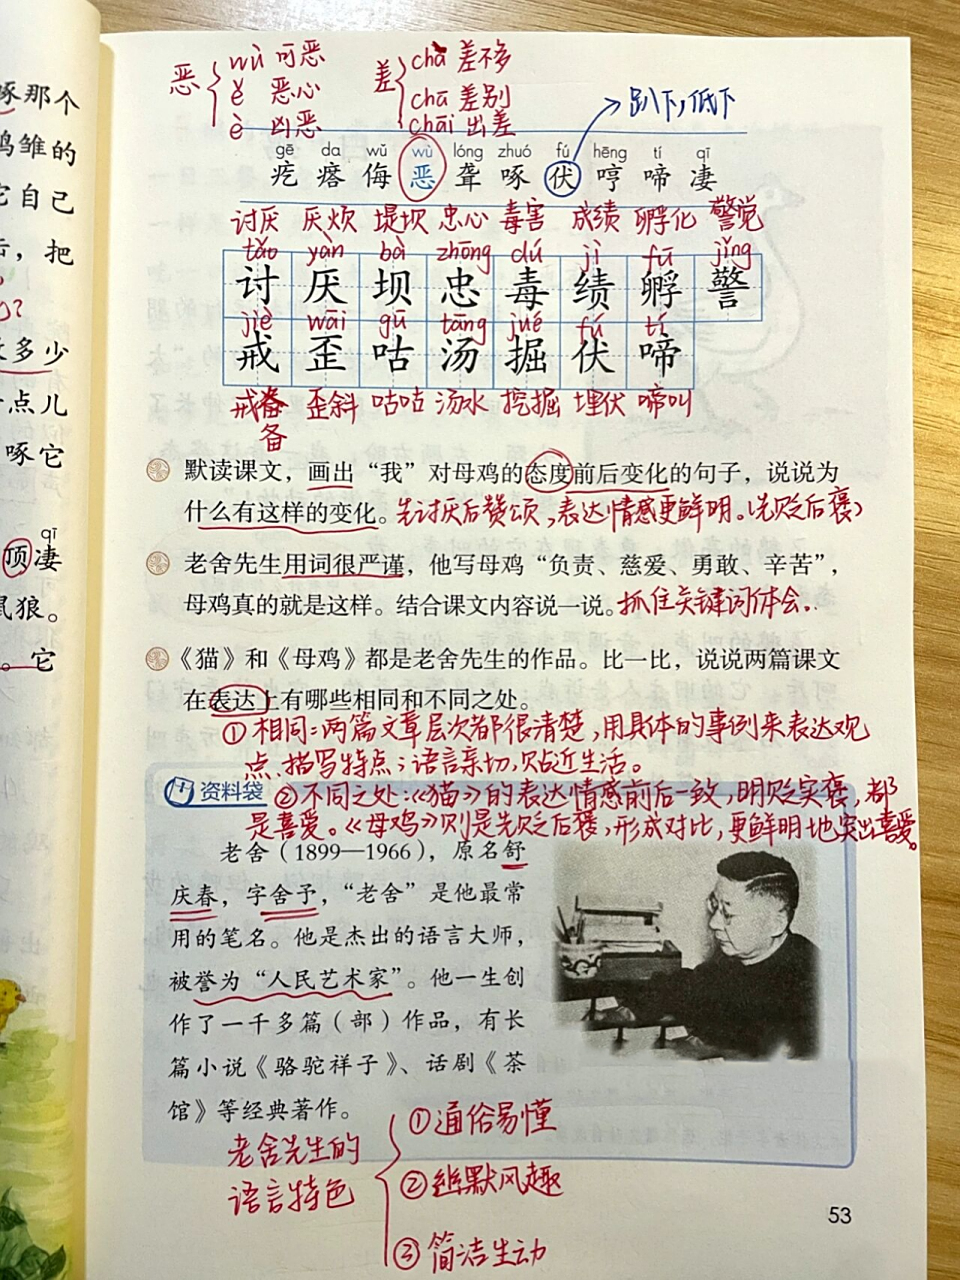 啄那个
鸡雏的
它自己
击，把
?
多少
一点儿
啄它
qī
顶凄
鼠狼。
。它
恶 wù 可恶
ě 恶心
è 凶恶
差 chà 差不多
chā 差别
chāi 出差
趴下，低下
gē da wǔ wù lóng zhuó fú hēng tí qī
疙 瘩 侮 恶 聋 啄 伏 哼 啼 凄
讨厌 厌烦 堤坝 忠心 毒害 成绩 孵化 警觉
tǎo yàn bà zhōng dú jì fū jǐng
讨 厌 坝 忠 毒 绩 孵 警
jiè wāi gū tāng jué fú tí
戒 歪 咕 汤 掘 伏 啼
戒备 歪斜 咕咕 汤水 挖掘 埋伏 啼叫
备
默读课文，画出“我”对母鸡的态度前后变化的句子，说说为
什么有这样的变化。先讨厌后赞颂，表达情感更鲜明。（先贬后褒）
老舍先生用词很严谨，他写母鸡“负责、慈爱、勇敢、辛苦”，
母鸡真的就是这样。结合课文内容说一说。抓住关键词体会。
《猫》和《母鸡》都是老舍先生的作品。比一比，说说两篇课文
在表达上有哪些相同和不同之处。
①相同：两篇文章层次都很清楚，用具体的事例来表达观
点、描写特点；语言亲切，贴近生活。
资料袋 ②不同之处：《猫》的表达情感前后一致，明贬实褒，都
是喜爱。《母鸡》则是先贬后褒，形成对比，更鲜明地突出喜爱。
老舍（1899—1966），原名舒
庆春，字舍予，“老舍”是他最常
用的笔名。他是杰出的语言大师，
被誉为“人民艺术家”。他一生创
作了一千多篇（部）作品，有长
篇小说《骆驼祥子》、话剧《茶
馆》等经典著作。
老舍先生的
语言特色
①通俗易懂
②幽默风趣
③简洁生动
53